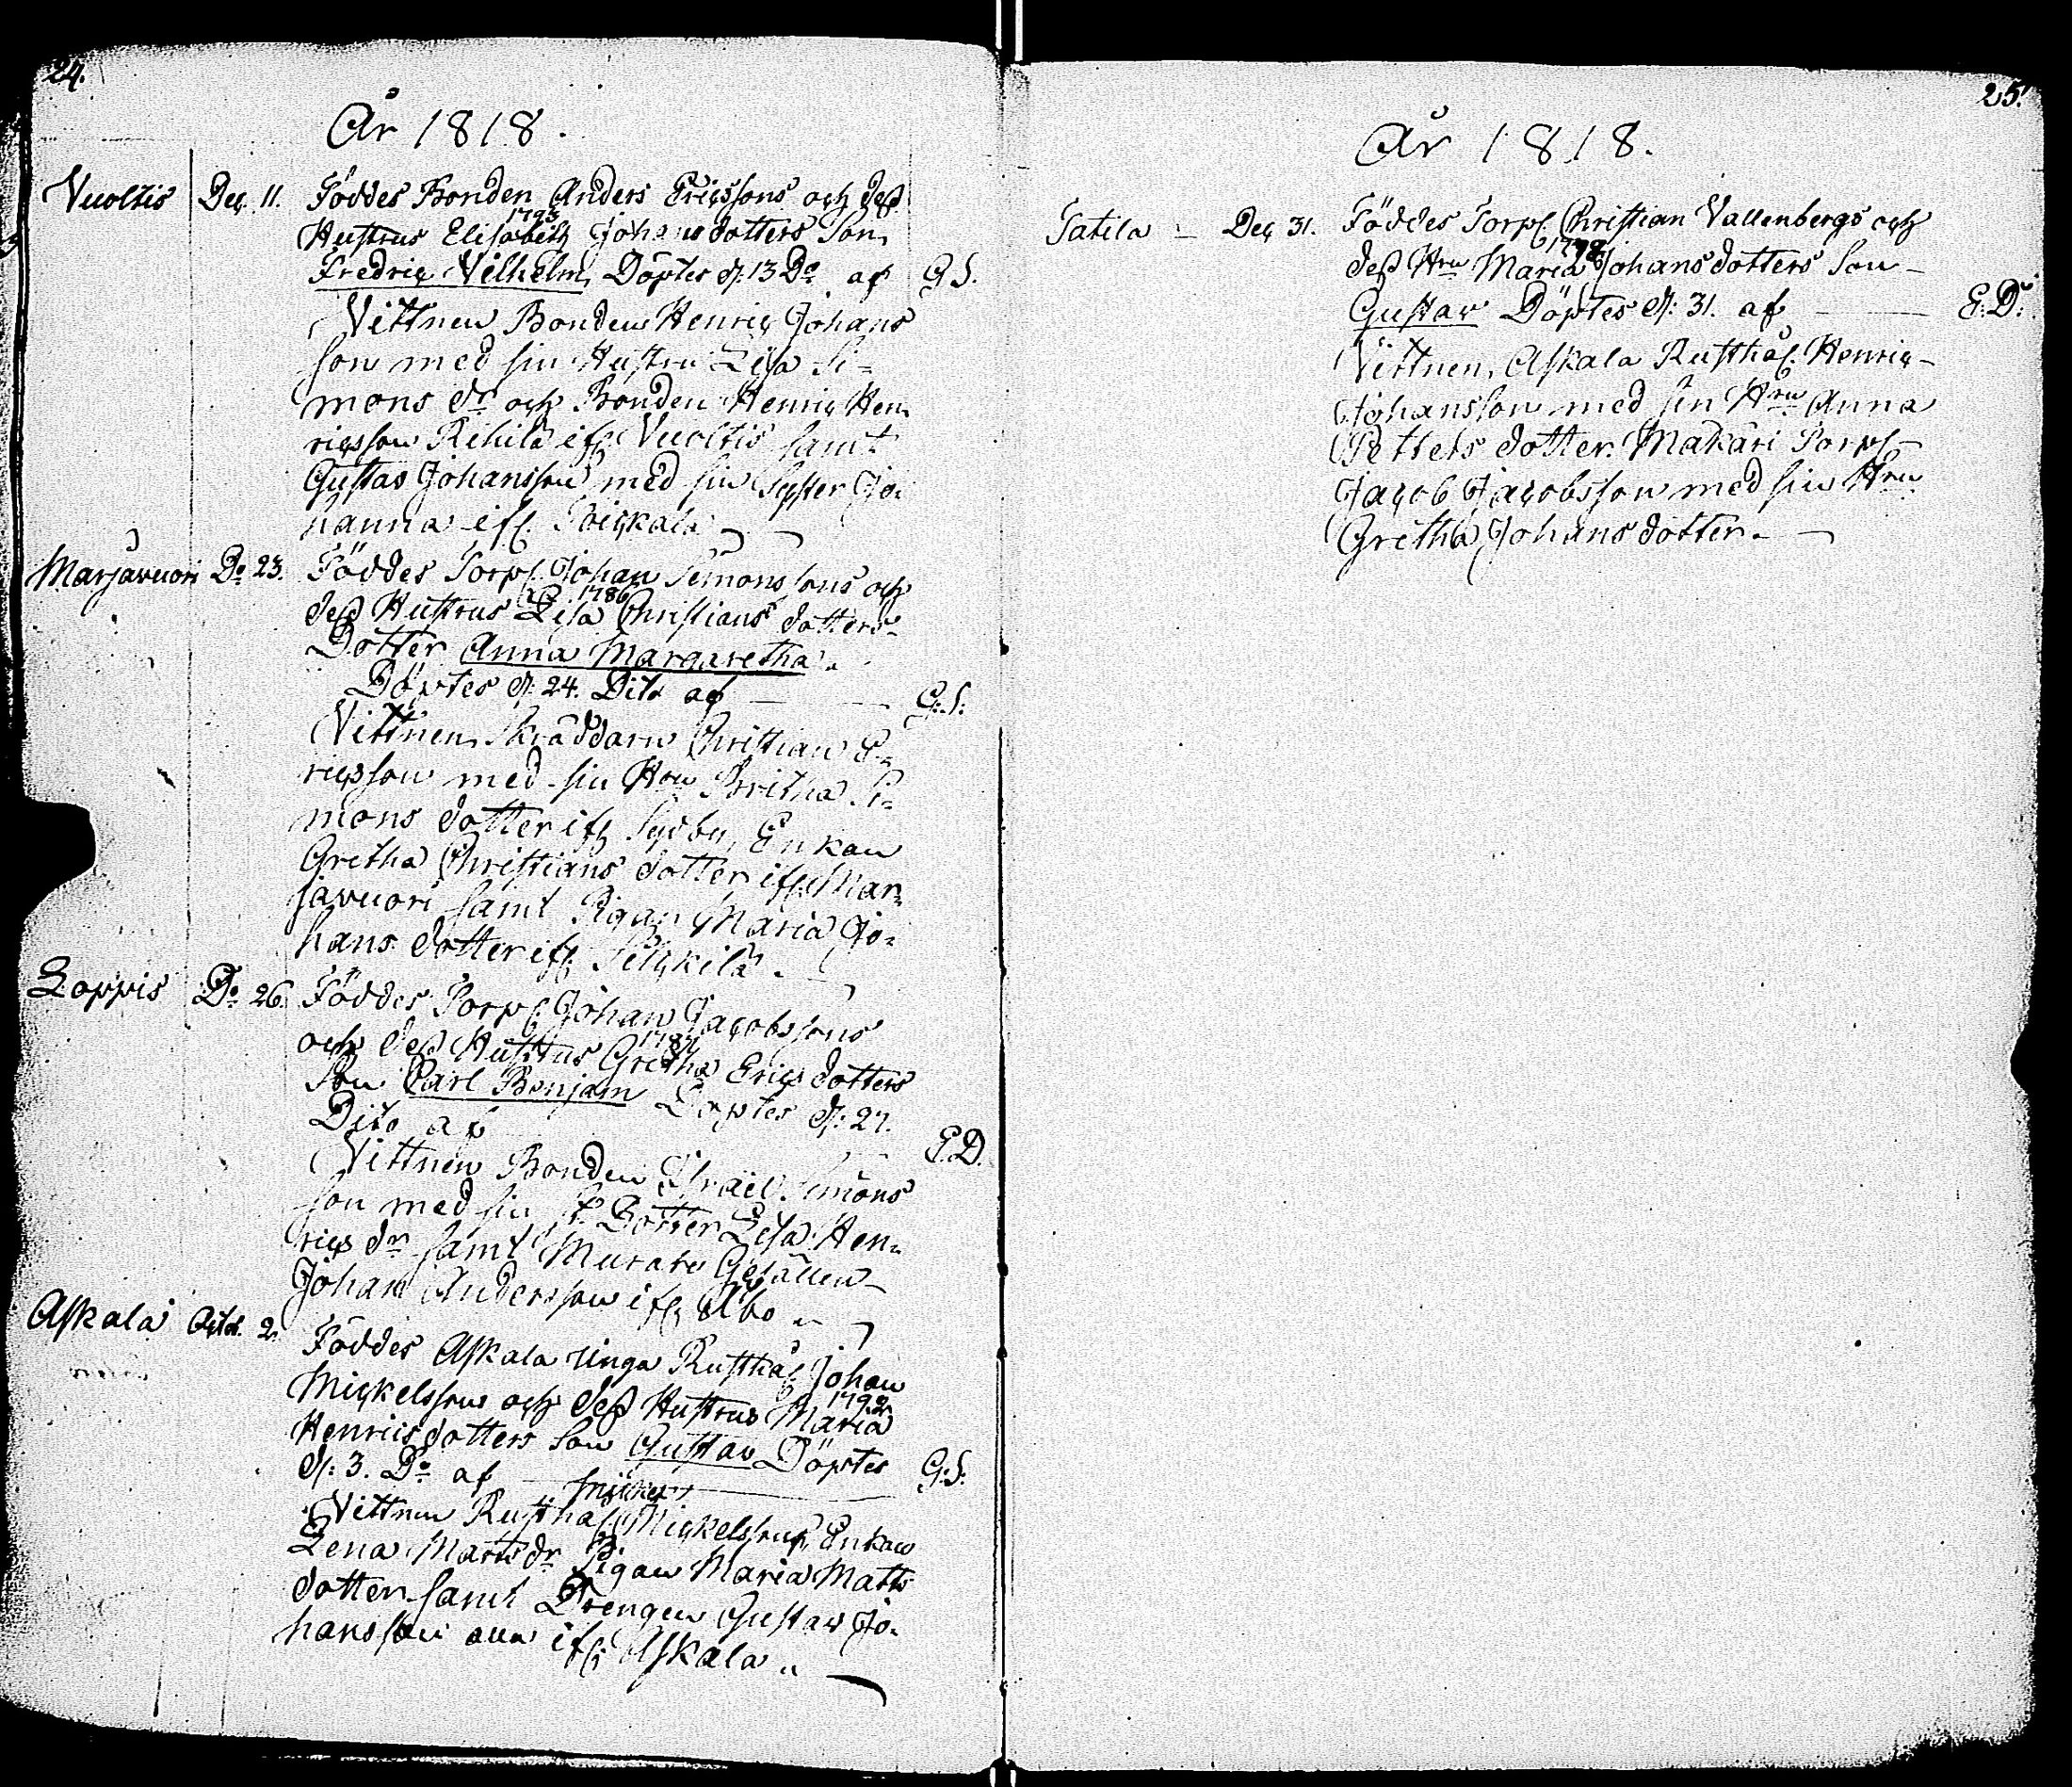 24.
År 1818.
Vuoltis Dec. 11. Föddes Bonden Anders Ericssons och dess
1793
Hustrus Elisabeth Johansdotters Son
Fredric Vilhelm, Döptes d. 13 Do af G S.
Vittnen Bonden Henric Johans
son med sin Hustru Lisa Si=
mons dr och Bonden Henric Hen
ricsson Rihilä ifr. Vuoltis samt
Gustav Johansson med sin Syster Jo-
hanna ifr.
Marjavuori Do 23. Föddes Torp. Johan Simonssons och
1786
dess Hustrus Lisa Christians dotters
Dotter Anna Margaretha.
Döptes d: 24. Dito af G: S:
Vittnen Skräddarn Christian E-
ricsson med sin Hru Britha Si=
mons dotter ifr Enkan
Gretha Christians dotter ifr. Mar-
javuori samt Pigan Maria Jo-
hans dotter ifr
Loppis Do 26. Föddes Torp. Johan Jacobssons
och dess Hustrus Gretha Erics dotters
Son Carl Benjam Döptes d: 27.
Dito af E. D.
Vittnen Bonden Israël Simons
son med sin St. Dotter Lisa Hen-
rics dr samt Murare Gesällen
Johan Andersson ifr Åbo
Askala Octob. 2. Föddes Askala Unga Rusthål. Johan
Mickelssons och dess Hustrus Maria
1792
Henricsdotters Son Gustav Döptes
d: 3. Do af G: S:
Vittnen Rusthål. Mickelsson, Enkan
Lena Matts dr Pigan Maria Matts
dotter samt Drengen Gustav Jo-
hansson alla ifr. Askala
25.
År 1818.
Tatila Dec 31. Föddes Torp. Christian Vallenbergs och
dess Hru Maria Johans dotters Son
Gustav Döptes d: 31. af E: D:
Vittnen, Askala Rusthål. Henric
Johansson med sin Hru Anna
Petters dotter. Makari Torp.
Jacob Jacobsson med sin Hru
Gretha Johansdotter.